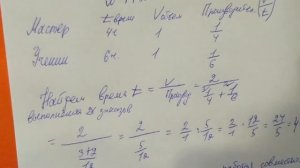 t врем Vобъем Производител. (V/t)
Мастер 4ч. 1 1/4
Ученик 6ч. 1 1/6
Найдем время t = V/Произв = 2/(1/4+1/6)
выполнения 2х заказов
= 2/((3+2)/12) = 2/(5/12) = 2/1 : 5/12 = 2/1 · 12/5 = 24/5 = 4
работая совместно